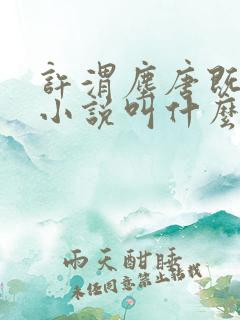 許渭塵唐既
小說叫什麼
雨天酣睡
未經同意禁止轉載